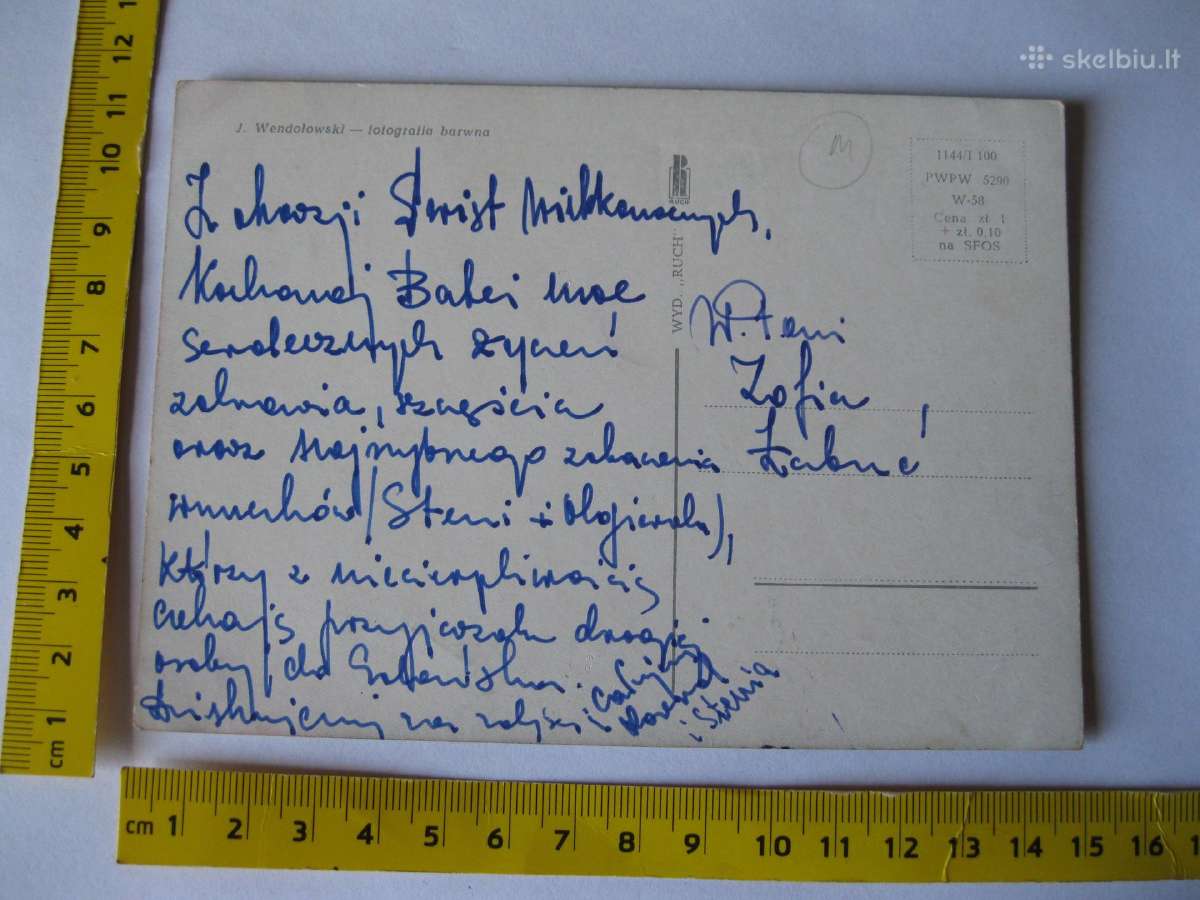 skelbiu.lt
J. Wendołowski — fotografia barwna
1144/I 100
PWPW 5290
W-58
Cena zł 1
+ zł. 0,10
na SFOS
RUCH
WYD. „RUCH"
Z okazji Świąt Wielkanocnych,
Kochanej Babci moc
serdecznych życzeń
zdrowia, szczęścia
oraz najrychlejszego zobaczenia
wnuchów (Steni i Olgierda),
którzy z niecierpliwością
czekają przyjazdu drogiej
osoby do Gdańska.
Dziękujemy za
Całuję
i Stenia
W. Pani
Zofia
cm 1 2 3 4 5 6 7 8 9 10 11 12
cm 1 2 3 4 5 6 7 8 9 10 11 12 13 14 15 16 1